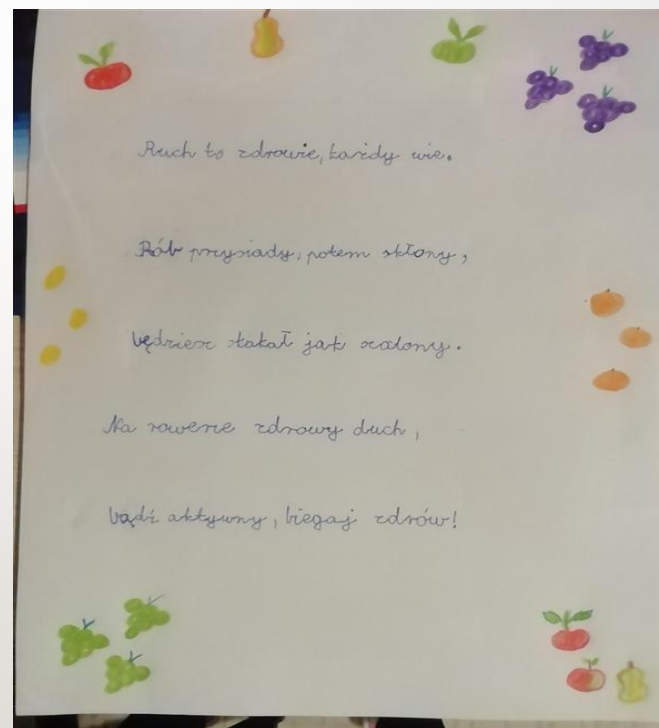 Ruch to zdrowie, każdy wie.
Rób przysiady, potem skłony,
będziesz skakał jak szalony.
Na rowerze zdrowy duch,
bądź aktywny, biegaj zdrów!